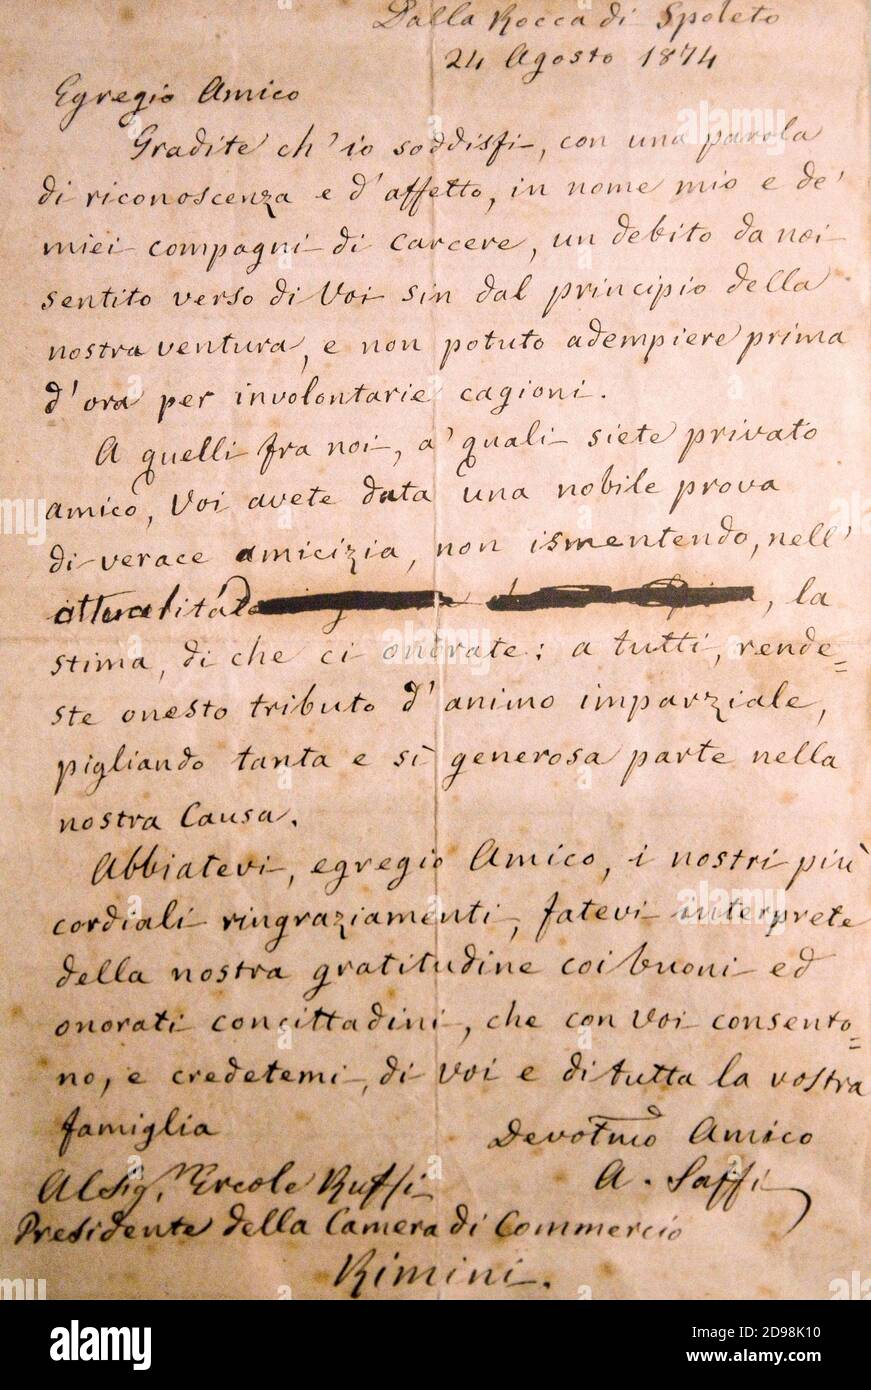 Dalla Rocca di Spoleto
24 Agosto 1874
Egregio Amico
Gradite ch'io soddisfi, con una parola
di riconoscenza e d'affetto, in nome mio e de'
miei compagni di carcere, un debito da noi
sentito verso di Voi sin dal principio della
nostra ventura, e non potuto adempiere prima
d'ora per involontarie cagioni.
A quelli fra noi, a' quali siete privato
amico, Voi avete data una nobile prova
di verace amicizia, non ismentendo, nell'
attualità , la
stima, di che ci onorate: a tutti, rende=
ste onesto tributo d'animo imparziale,
pigliando tanta e sì generosa parte nella
nostra Causa.
Abbiatevi, egregio Amico, i nostri più
cordiali ringraziamenti, fatevi interprete
della nostra gratitudine coi buoni ed
onorati concittadini, che con Voi consento=
no, e credetemi, di Voi e di tutta la vostra
famiglia
Devotmo Amico
A. Saffi
Al Sig.r Ercole Ruffi
Presidente della Camera di Commercio
Rimini.
alamy
Image ID: 2D98K10
www.alamy.com